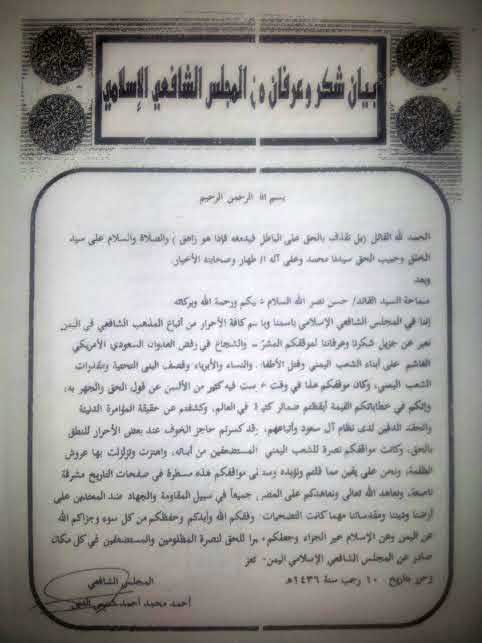 بيان شكر وعرفان من المجلس الشافعي الإسلامي
بسم الله الرحمن الرحيم
الحمد لله القائل (بل نقذف بالحق على الباطل فيدمغه فإذا هو زاهق) والصلاة والسلام على سيد
الخلق وحبيب الحق سيدنا محمد وعلى آله الأطهار وصحابته الأخيار.
وبعد
سماحة السيد القائد/ حسن نصر الله السلام عليكم ورحمة الله وبركاته
إننا في المجلس الشافعي الإسلامي باسمنا وباسم كافة الأحرار من أتباع المذهب الشافعي في اليمن
نعبر عن جزيل شكرنا وعرفاننا لموقفكم المشرف والشجاع في رفض العدوان السعودي الأمريكي
الغاشم على أبناء الشعب اليمني وقتل الأطفال والنساء والأبرياء وقصف البنى التحتية ومقدرات
الشعب اليمني، وكان موقفكم هذا في وقت خرست فيه كثير من الألسن عن قول الحق والجهر به،
وإنكم في خطاباتكم القيمة أيقظتم ضمائر كثيرة في العالم، وكشفتم عن حقيقة المؤامرة الدنيئة
والحقد الدفين لدى نظام آل سعود وأتباعهم، وقد كسرتم حاجز الخوف عند بعض الأحرار للنطق
بالحق، وكانت مواقفكم نصرة للشعب اليمني المستضعفين من أبنائه، واهتزت وتزلزلت بها عروش
الظلمة، ونحن على يقين مما قلتم ونؤيده وستبقى مواقفكم هذه مسطرة في صفحات التاريخ مشرقة
ناصعة، ونعاهد الله تعالى ونعاهدكم على المضي جميعاً في سبيل المقاومة والجهاد ضد المعتدين على
أرضنا وديننا ومقدساتنا مهما كانت التضحيات. وفقكم الله وأيدكم وحفظكم من كل سوء وجزاكم الله
عن اليمن وعن الإسلام خير الجزاء وجعلكم للحق لنصرة المظلومين والمستضعفين في كل مكان
صادر عن المجلس الشافعي الإسلامي اليمن- تعز
بتاريخ: ١٠ رجب سنة ١٤٣٦هـ
المجلس الشافعي
أحمد محمد أحمد